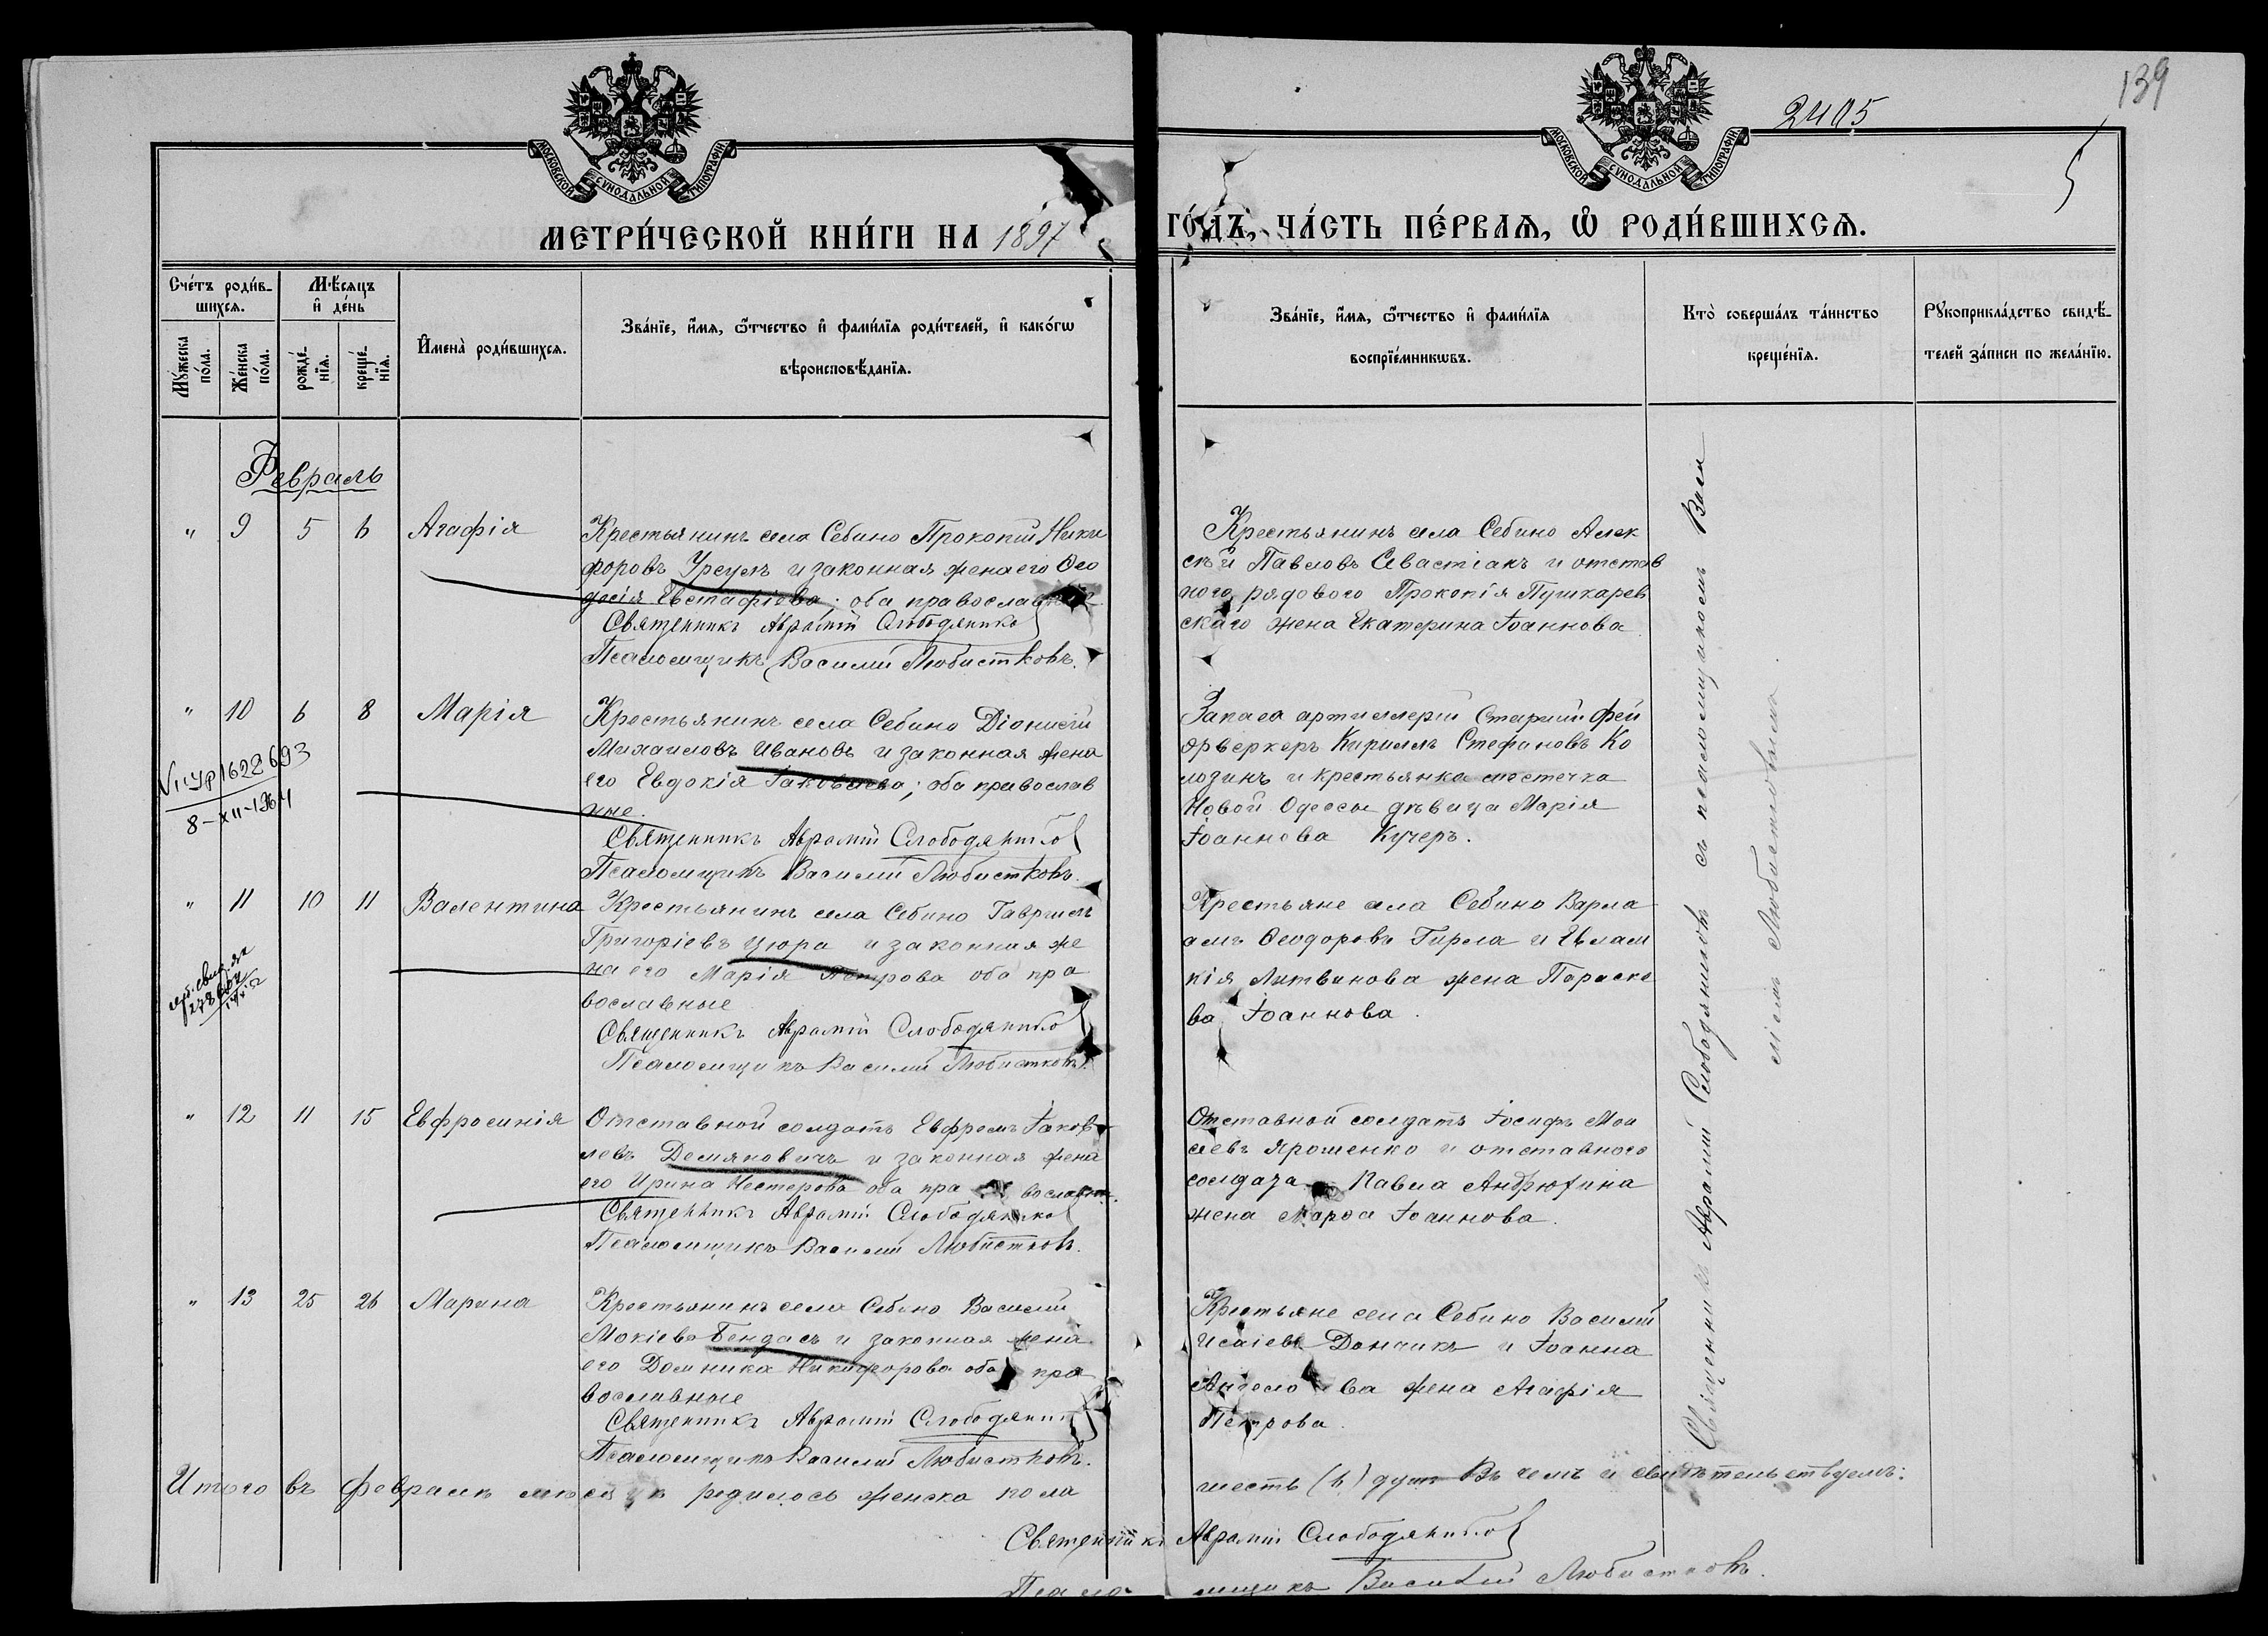 139
2405
5
МОСКОВСКОЙ СѴНОДАЛЬНОЙ ТИПОГРАФІИ
МОСКОВСКОЙ СѴНОДАЛЬНОЙ ТИПОГРАФІИ
МЕТРИ́ЧЕСКОЙ КНИ́ГИ НА 1897 ГО́ДЪ, ЧА́СТЬ ПЕ́РВАѦ, Ѡ҆ РОДИ́ВШИХСѦ.
Сче́тъ роди́в-
шихсѧ.
Мꙋ́жеска по́ла.
Же́нска по́ла.
Мѣ́сѧцъ
и҆ де́нь
рожде́-нїѧ.
креще́-нїѧ.
И҆мена̀ роди́вшихсѧ.
Зва́нїе, и҆́мѧ, ѻ҆́тчество и҆ фами́лїѧ роди́телей, и҆ како́гѡ
вѣроисповѣ́данїѧ.
Зва́нїе, и҆́мѧ, ѻ҆́тчество и҆ фами́лїѧ
воспрїе́мникѡвъ.
Кто̀ соверша́лъ та́инство
креще́нїѧ.
Рꙋкоприкла́дство свидѣ́-
телей за́писи по жела́нїю.
Февраль
" 9 5 6 Агафія
Крестьянинъ села Себино Прокопій Ники
форовъ Урсулъ и законная жена его Ѳео
досія Евстафіева; оба православные
Священникъ Аврамій Слободянико
Псаломщикъ Василій Любистковъ.
Крестьянинъ села Себино Алек
сѣй Павловъ Севастіанъ и отстав
ного рядового Прокопія Пушкарев
скаго жена Екатерина Іоаннова
" 10 6 8 Марія
VI-УР 1622693
8-XII-1964
Крестьянинъ села Себино Діонисій
Михаиловъ Ивановъ и законная жена
его Евдокія Іаковлева; оба православ
ные.
Священникъ Аврамій Слободянико
Псаломщикъ Василій Любистковъ.
Запаса артиллеріи Старшій фей
ерверкеръ Кириллъ Стефановъ Ко
лозинъ и крестьянка мѣстечка
Новой Одессы дѣвица Марія
Іоаннова Кучеръ.
" 11 10 11 Валентина
Крестьянинъ села Себино Гавріилъ
Григоріевъ Цюра и законная же
на его Марія Петрова оба пра
вославные
Священникъ Аврамій Слободянико
Псаломщикъ Василій Любистковъ.
Крестьяне села Себино Варла
амъ Ѳеодоровъ Гирла и Евлам
пія Литвинова жена Параске
ва Іоаннова.
" 12 11 15 Евфросинія
Отставной солдатъ Ефремъ Іаков
левъ Демяновичъ и законная жена
его Ирина Нестерова оба пра вослав.
Священникъ Аврамій Слободянико
Псаломщикъ Василій Любистковъ.
Отставной солдатъ Іосифъ Мои
сѣевъ Ярошенко и отставного
солдата Павла Андрюхина
жена Марѳа Іоаннова.
" 13 25 26 Марина
Крестьянинъ села Себино Василій
Мокіевъ Бендасъ и законная жена
его Домника Никифорова оба пра
вославные
Священникъ Аврамій Слободяник
Псаломщикъ Василій Любистковъ.
Крестьяне села Себино Василій
Исаіевъ Дончикъ и Іоанна
Ангело ва жена Агафія
Петрова
Священникъ Аврамій Слободяниковъ съ псаломщикомъ Васи
ліемъ Любистковымъ.
Итого въ февралѣ мѣсяцѣ родилось женска пола шесть (6) душъ Въ чемъ и свидѣтельствуемъ:
Священникъ Аврамій Слободянико
Псаломщикъ Василій Любистковъ.